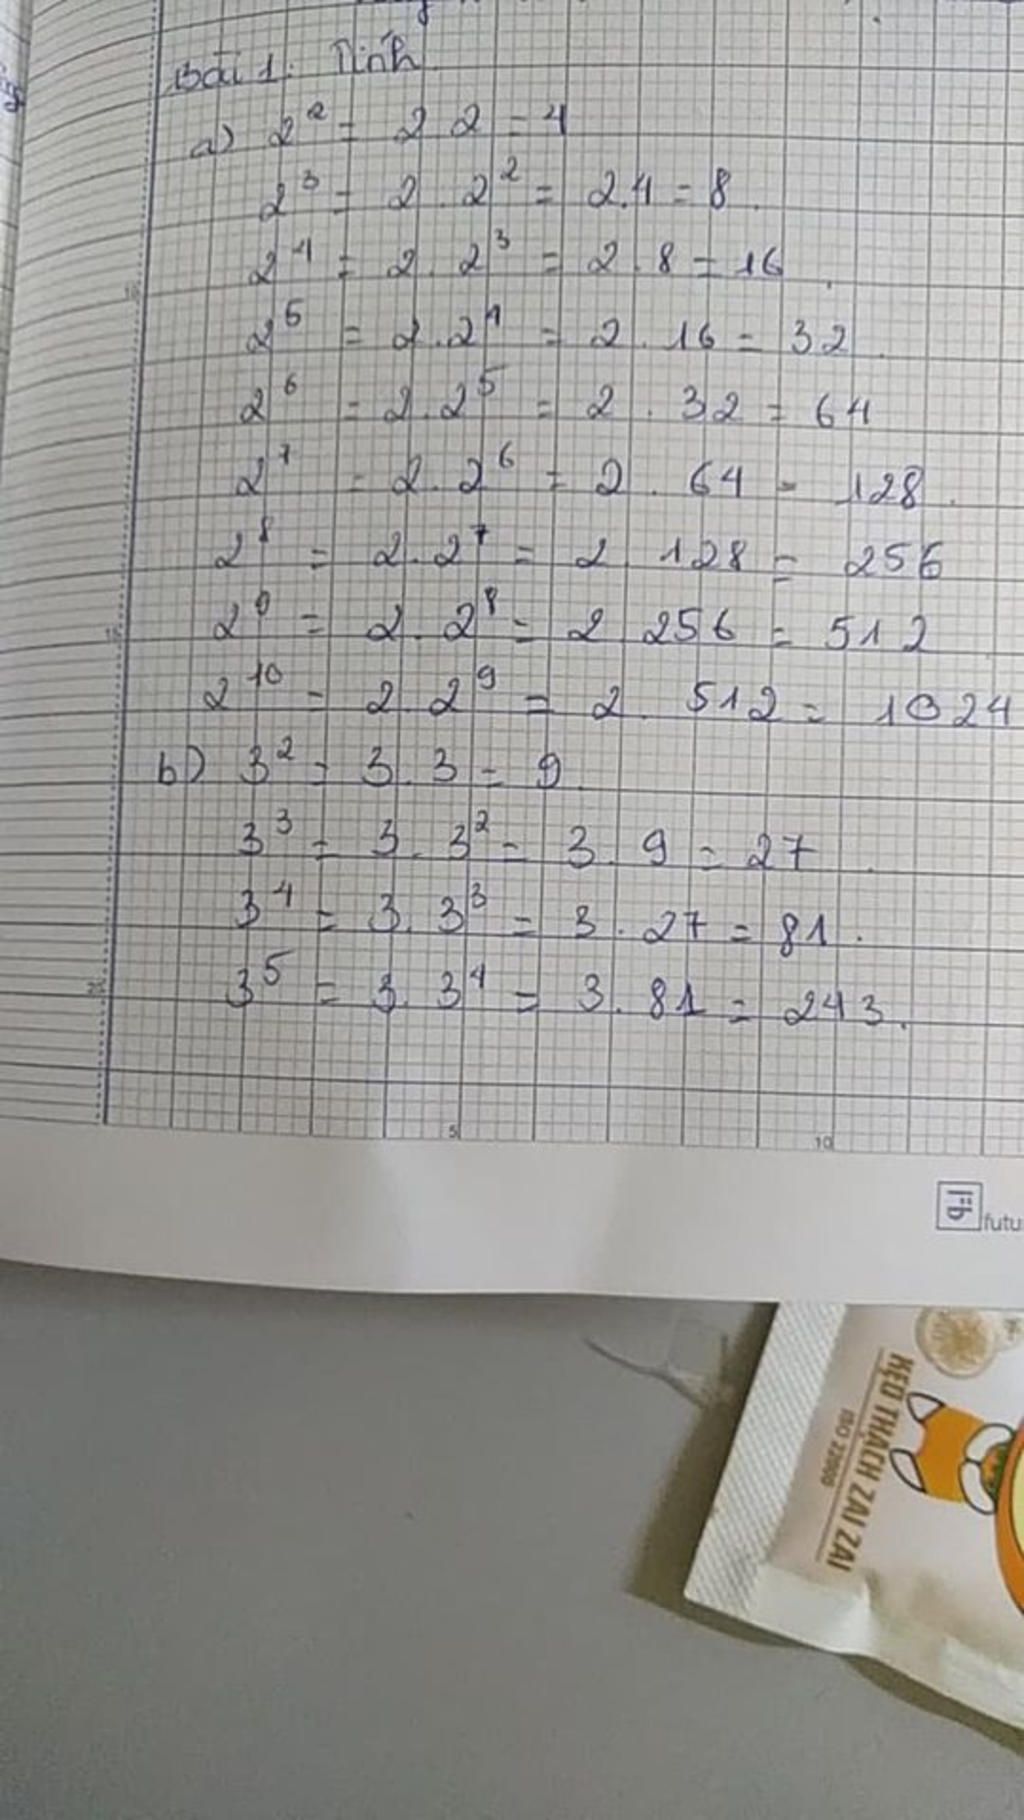 Bài 1: Tính
a) 2² = 2 2 = 4
2³ = 2 . 2² = 2.4 = 8.
2⁴ = 2. 2³ = 2.8 = 16.
2⁵ = 2.2⁴ = 2. 16 = 32.
2⁶ = 2.2⁵ = 2 . 32 = 64
2⁷ = 2. 2⁶ = 2 . 64 = 128.
2⁸ = 2.2⁷ = 2 128 = 256
2⁹ = 2.2⁸ = 2 256 = 512
2¹⁰ = 2.2⁹ = 2. 512 = 1024
b) 3² = 3.3 = 9.
3³ = 3. 3² = 3. 9 = 27.
3⁴ = 3. 3³ = 3. 27 = 81.
3⁵ = 3. 3⁴ = 3. 81 = 243.
5 10
futu
KẸO THẠCH ZAI ZAI
ISO 22000